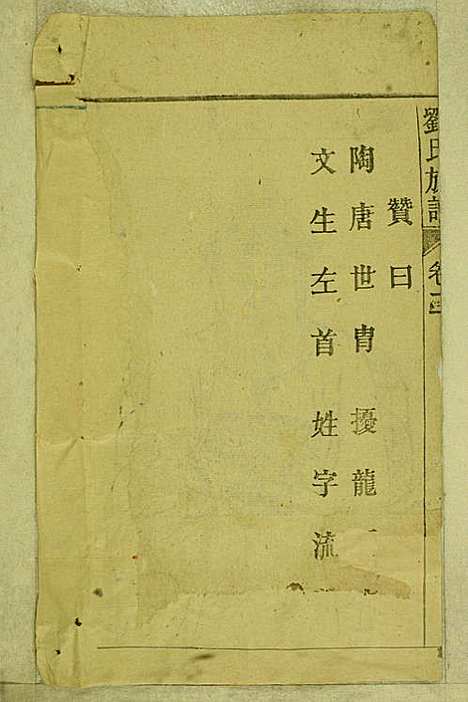 劉氏族譜
卷一
贊曰
陶唐世胄 擾龍
文生左首 姓字流